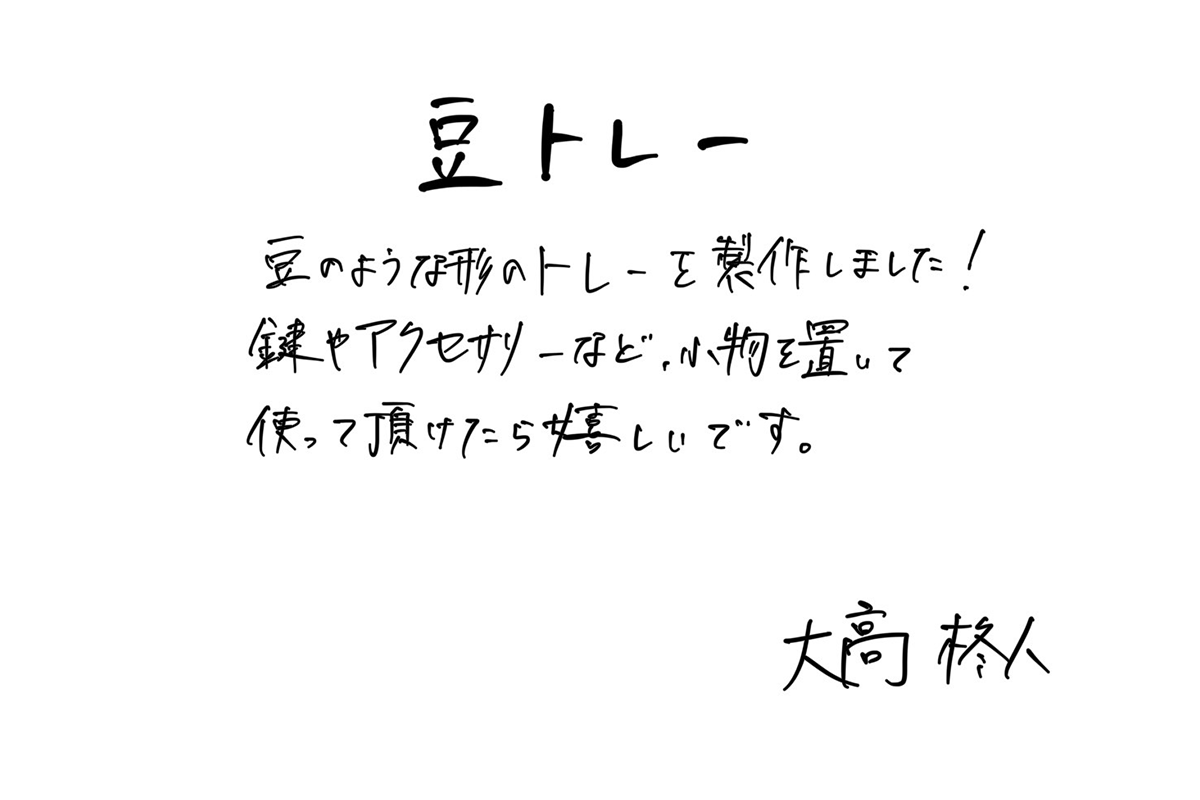 豆トレー
豆のような形のトレーを製作しました!
鍵やアクセサリーなど、小物を置いて
使って頂けたら嬉しいです。
大高 柊人